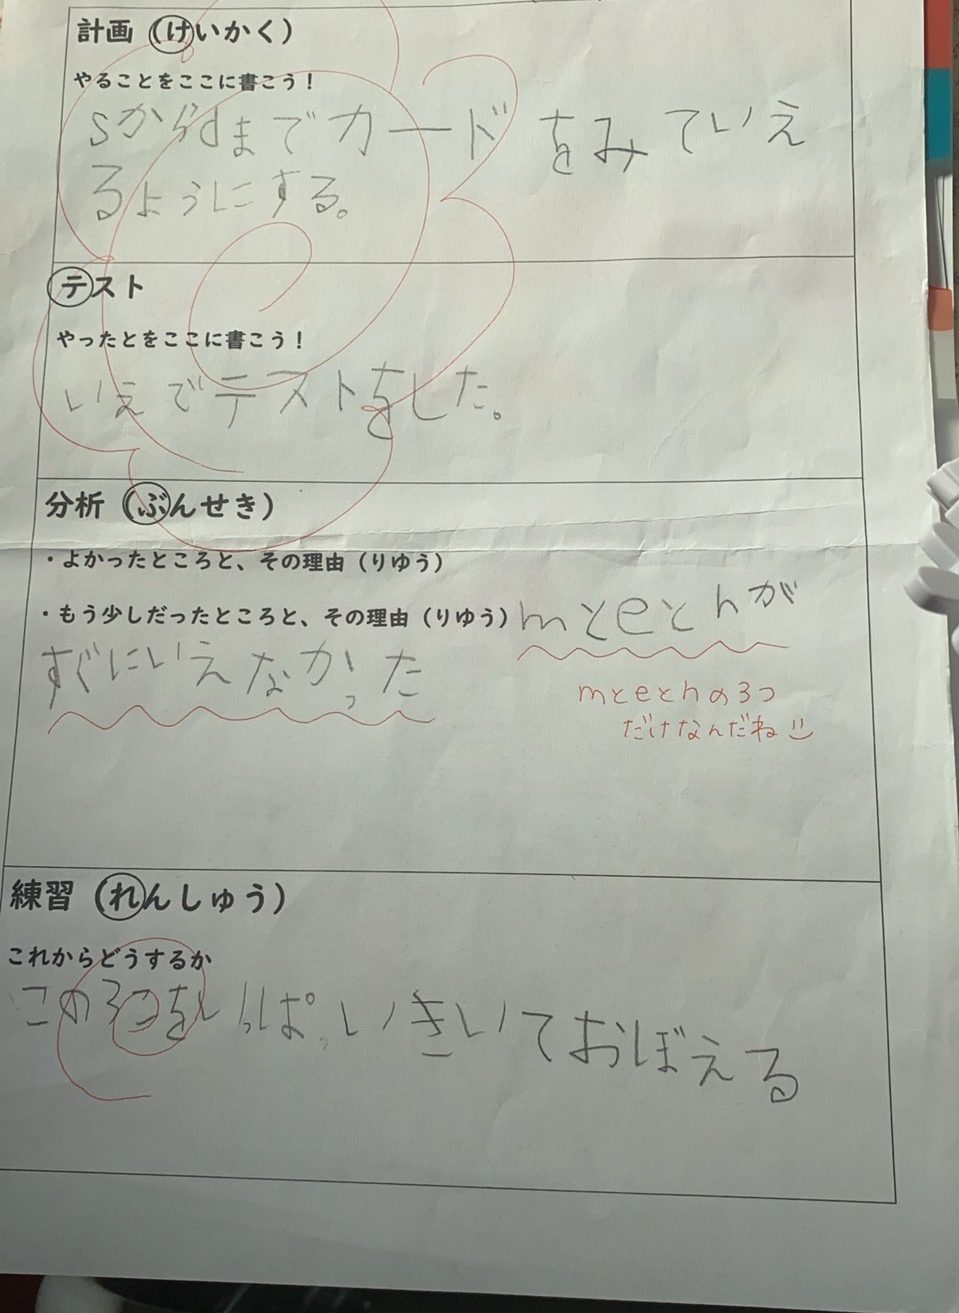 計画（けいかく）
やることをここに書こう！
sからdまでカードをみていえ
るようにする。
テスト
やったとをここに書こう！
いえでテストをした。
分析（ぶんせき）
・よかったところと、その理由（りゆう）
・もう少しだったところと、その理由（りゆう）mとeとnが
すぐにいえなかった
mとeとnの3つ
だけなんだね
練習（れんしゅう）
これからどうするか
この3つをいっぱいきいておぼえる